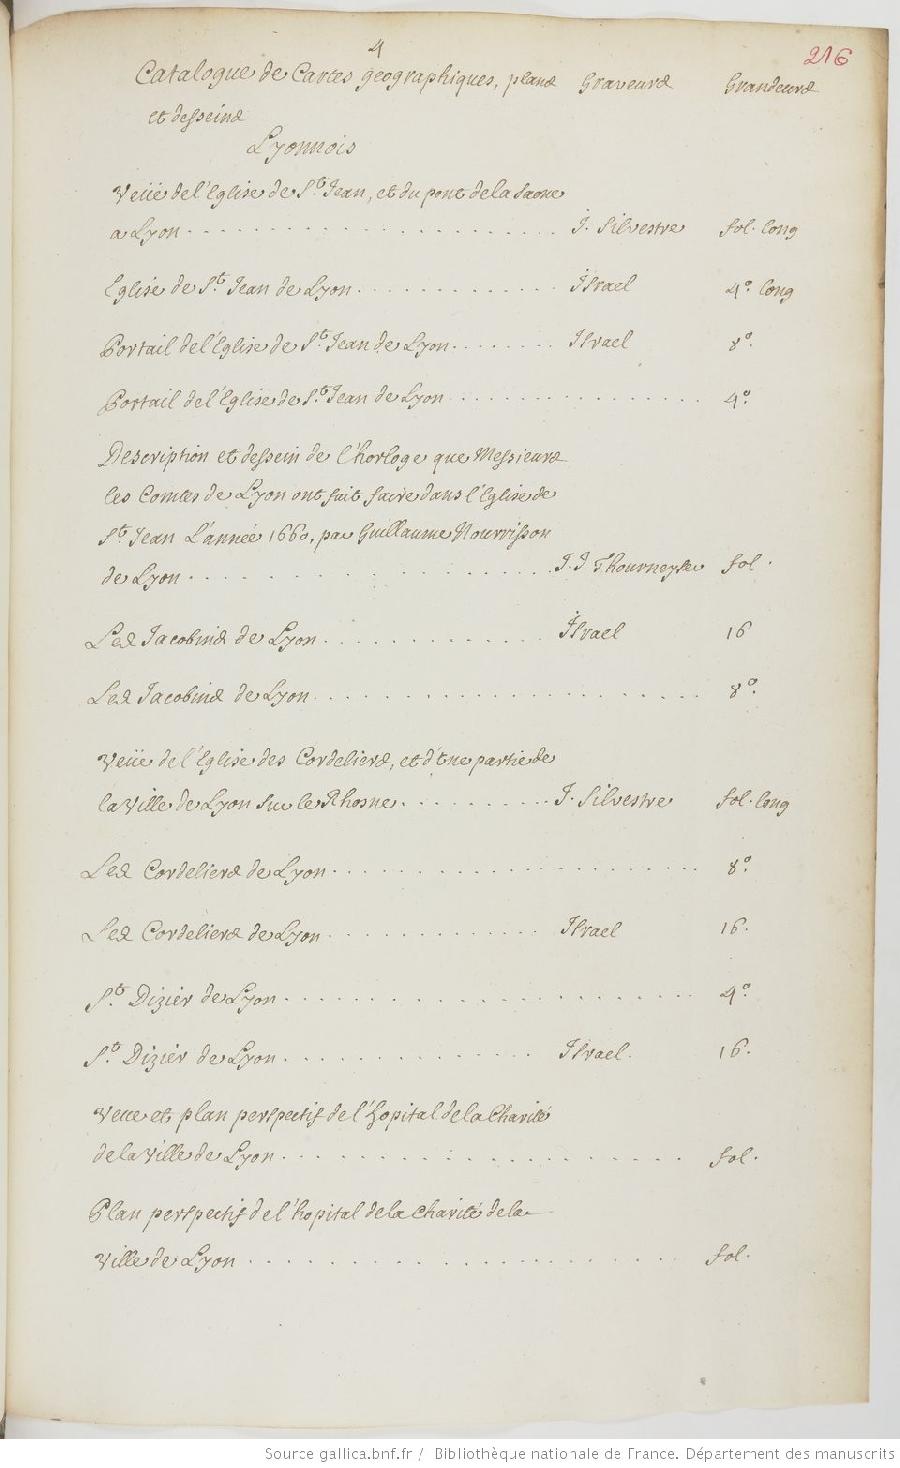 4
216
Catalogue de Cartes geographiques, plans Graveurs Grandeurs
et desseins
Lyonnois
Veüe de l'Eglise de St. Jean, et du pont de la Saone
a Lyon . . . . . J. Silvestre fol. long
Eglise de St. Jean de Lyon . . . . . Israel 4º. long
Portail de l'Eglise de St. Jean de Lyon . . . . . Israel 8º.
Portail de l'Eglise de St. Jean de Lyon . . . . . 4º.
Description et dessein de l'horloge que Messieurs
les Comtes de Lyon ont fait faire dans l'Eglise de
St. Jean L'année 1660, par Guillaume Nourrisson
de Lyon . . . . . J. J Thourneysen fol.
Les Jacobins de Lyon . . . . . Israel 16
Les Jacobins de Lyon . . . . . 8º.
Veüe de l'Eglise des Cordeliers, et d'Une partie de
la Ville de Lyon sur le Rhosne . . . . . J. Silvestre fol. long
Les Cordeliers de Lyon . . . . . 8º.
Les Cordeliers de Lyon . . . . . Israel 16.
St. Dizier de Lyon . . . . . 4º.
St. Dizier de Lyon . . . . . Israel. 16.
Veue et plan perspectif de l'hopital de la Charité
de la Ville de Lyon . . . . . fol.
Plan perspectif de l'hopital de la Charité de la
Ville de Lyon . . . . . fol.
Source gallica.bnf.fr / Bibliothèque nationale de France. Département des manuscrits